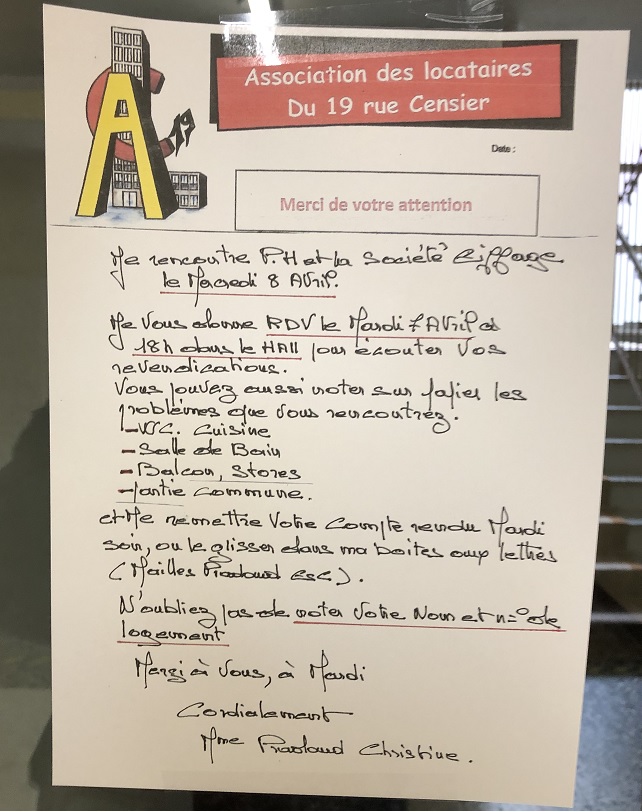 A
19
Association des locataires
Du 19 rue Censier
Date :
Merci de votre attention
Je rencontre P.H et la Société Eiffage
le Mercredi 8 Avril.
Je Vous donne RDV le Mardi 7 Avril à
18h dans le HAll pour écouter Vos
revendications.
Vous pouvez aussi noter sur papier les
problèmes que Vous rencontrez.
-WC. Cuisine
-Salle de Bain
-Balcon, Stores
-partie commune.
et Me remettre Votre Compte rendu Mardi
soir, ou le glisser dans ma Boites aux lettres
N'oubliez pas de noter Votre Nom et n=° de
logement
Merçi à Vous, à Mardi
Cordialement
Mme Christine.